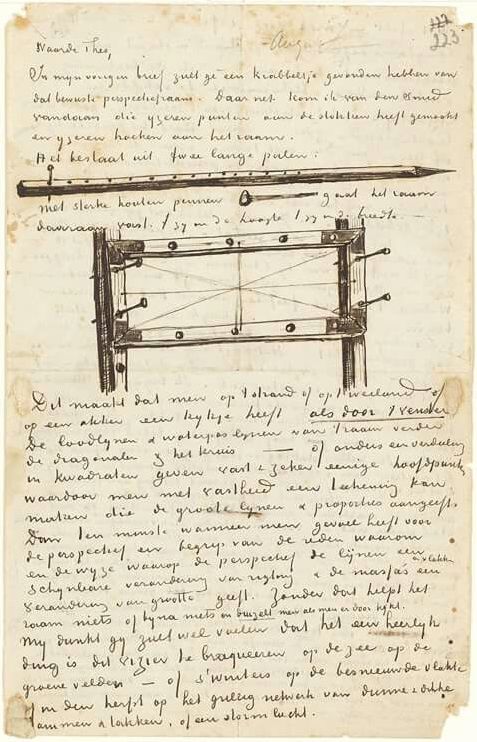 223
Waarde Theo,
In mijn vorigen brief zult ge een krabbeltje gevonden hebben van
dat bewuste perspectiefraam. Daar net kom ik van den smid
vandaan die yzeren punten aan de stokken heeft gemaakt
en yzeren hoeken aan het raam.
Het bestaat uit twee lange palen:
met sterke houten pennen gaat het raam
daaraan vast.
Dit maakt dat men op 't strand of op 't weiland of
op een akker een kykje heeft als door 't venster
De loodlynen & waterpaslynen van 't raam verder
de diagonalen & het kruis — of anders een verdeeling
in kwadraten geven vast & zeker eenige hoofdpunten
waardoor men met vastheid een teekening kan
maken die de groote lynen & proporties aangeeft
Dan ten minste wanneer men gevoel heeft voor
de perspectief en begrip van de reden waarom
en de wyze waarop de perspectief de lijnen een
schynbare verandering van rigting & de massas een
en vlakken
verandering van grootte geeft. Zonder dat helpt het
raam niets of byna niets en duizelt men als men er door kijkt.
My dunkt gy zult wel voelen dat het een heerlyk
ding is dit vizier te braqueeren op de zee op de
groene velden — of s'winters op de besneeuwde vlakte
of in den herfst op het grillig netwerk van dunne & dikke
tammen & takken, of een stormlucht.